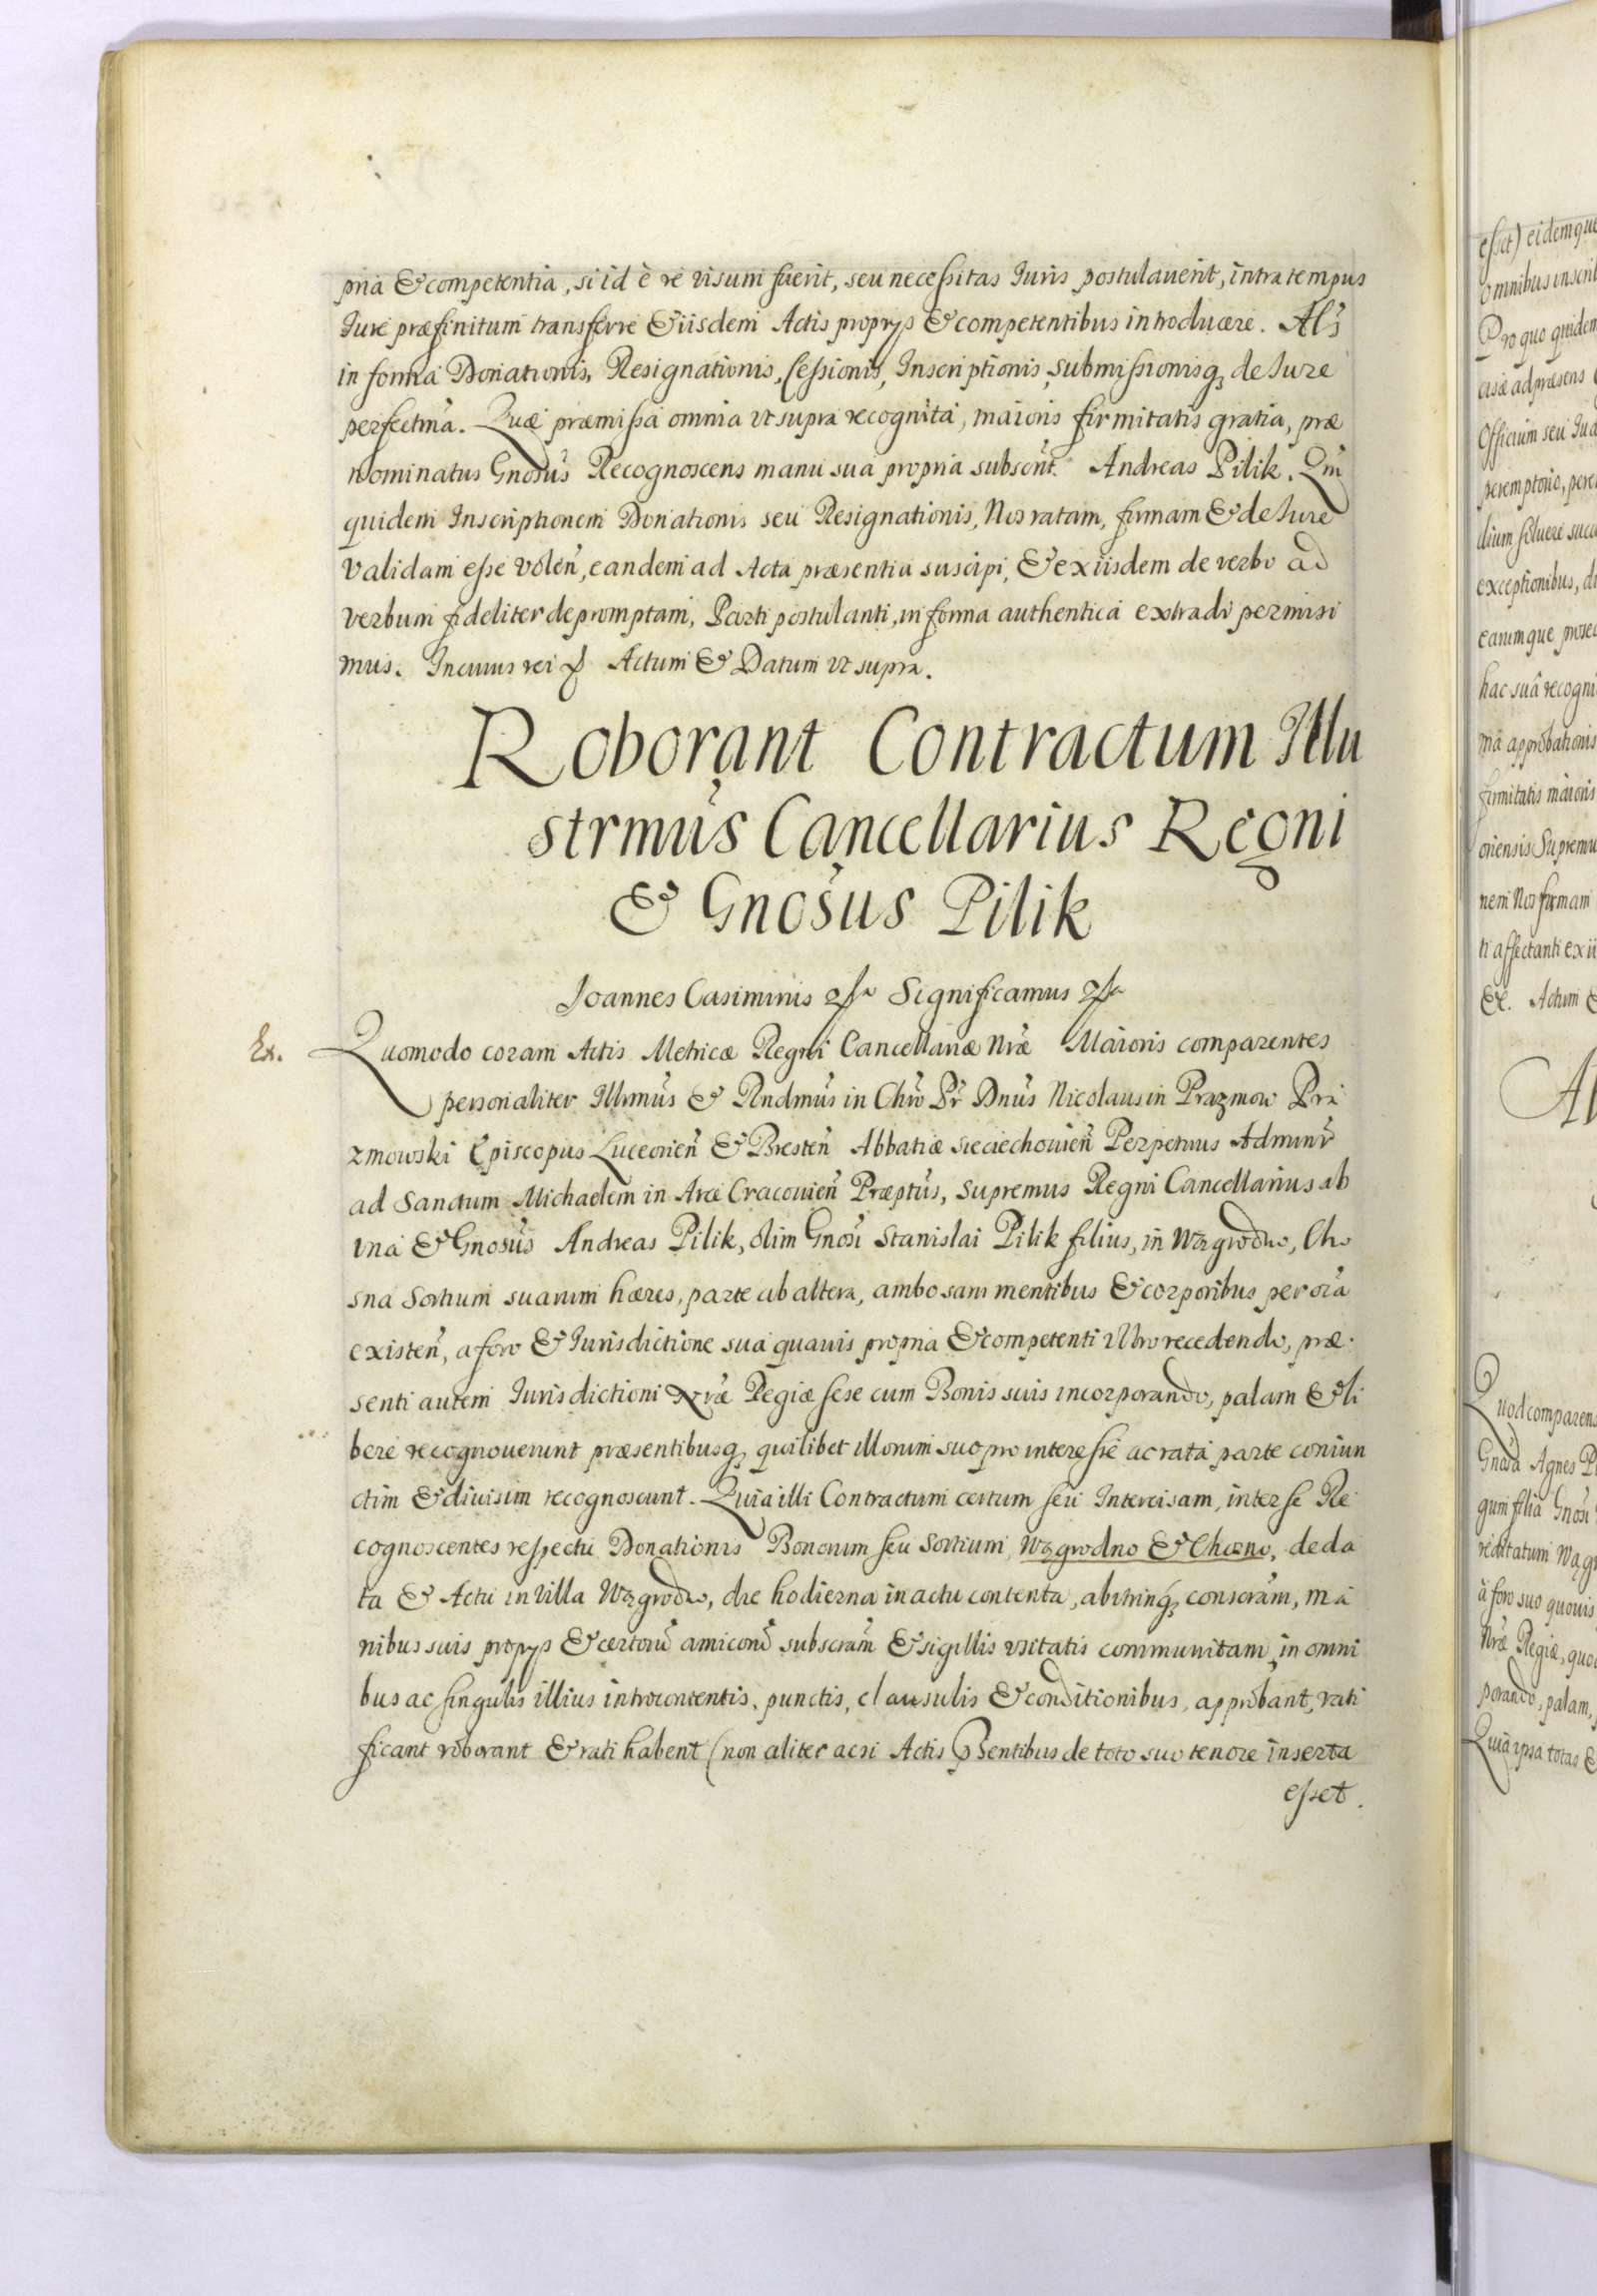 pria & competentia, si id è re visum fuerit, seu necessitas Iuris postulauerit, intra tempus
Iure præfinitum transferre & iisdem Actis proprys & competentibus introducere. Als
in forma Donationis, Resignationis, Cessionis, Inscriptionis, submissionisq, de Iure
perfectma. Quæ præmissa omnia vt supra recognita, maioris firmitatis gratia, præ
nominatus Gnosus Recognoscens manu sua propria subscrit. Andreas Pilik. Qm
quidem Inscriptionem Donationis seu Resignationis, Nos ratam, firmam & de Iure
validam esse volen, eandem ad Acta præsentia suscipi, & ex iisdem de verbo ad
verbum fideliter depromptam, Parti postulanti, in forma authentica extradi permisi
mus. In cuius rei Actum & Datum vt supra.
Roborant Contractum Illu
strmus Cancellarius Regni
& Gnosus Pilik
Ioannes Casimirus Significamus
Ex.
Quomodo coram Actis Metricæ Regni Cancellariæ Nræ Maioris comparentes
personaliter Illrmus & Rndmus in Chro Pr Dnus Nicolaus in Prazmow Pra
zmowski Episcopus Luceorien & Bresten Abbatiæ sieciechouien Perpetuus Adminr
ad Sanctum Michaelem in Arce Cracouien Præptus, supremus Regni Cancellarius ab
vna & Gnosus Andreas Pilik, olim Gnosi Stanislai Pilik filius, in Wzgrodno, Cho
sna Sortium suarum hæres, parte ab altera, ambo sani mentibus & corporibus per oia
existen, a foro & Iurisdictione sua quauis propria & competenti vltro recedendo, præ
senti autem Iurisdictioni Nræ Regiæ sese cum Bonis suis incorporando, palam & li
bere recognouerunt præsentibusq, quilibet illorum suo pro interesse ac rata parte coniun
ctim & diuisim recognoscunt. Quia illi Contractum certum seu Intercisam, inter se Re
cognoscentes respectu Donationis Bonorum seu Sortium Wzgrodno & Chosno, de da
ta & Actu in villa Wzgrodno, die hodierna in actu contenta, ab vtrinq, conscram, ma
nibus suis proprys & certoru amicoru subscram & sigillis vsitatis communitam, in omni
bus ac singulis illius introcontentis, punctis, clausulis & conditionibus, approbant, rati
ficant roborant & rati habent (non aliter acsi Actis Psentibus de toto suo tenore inserta
esset.